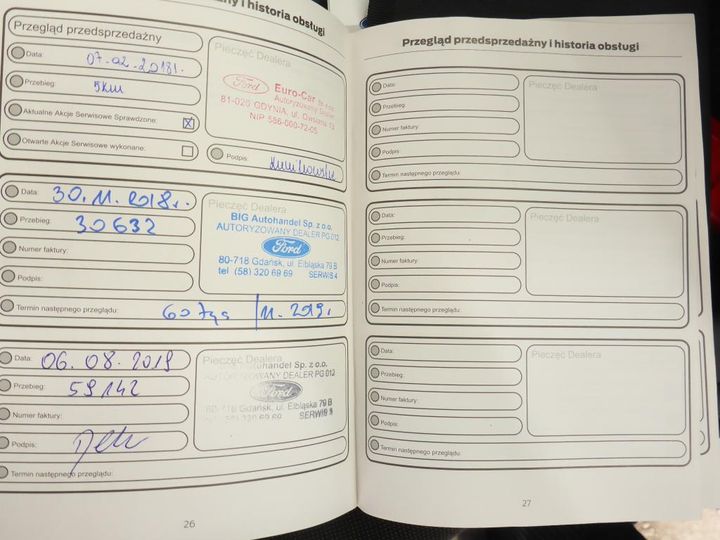 ny i historia obsługi
Przegląd przedsprzedażny
Data: 07-02-2018r.
Przebieg: 5km
Aktualne Akcje Serwisowe Sprawdzone:
Otwarte Akcje Serwisowe wykonane:
Pieczęć Dealera
Ford Euro-Car
Autoryzowany Dealer
81-020 GDYNIA, ul.
NIP 586-000-72-05
Podpis:
Data: 30.11.2018r.
Przebieg: 30632
Numer faktury:
Podpis:
Termin następnego przeglądu: 60 tys 11.2019.
Pieczęć Dealera
BIG Autohandel Sp. z o.o.
AUTORYZOWANY DEALER PG 012
Ford
80-718 Gdańsk, ul. Elbląska 79 B
tel (58) 320 69 69 SERWIS 4
Data: 06.08.2019
Przebieg: 59142
Numer faktury:
Podpis:
Termin następnego przeglądu:
Pieczęć Dealera
Autohandel Sp. z o.o.
DEALER PG 012
Ford
Gdańsk, ul. Elbląska 79 B
SERWIS
26
Przegląd przedsprzedażny i historia obsługi
Data:
Przebieg:
Numer faktury:
Podpis:
Termin następnego przeglądu:
Pieczęć Dealera
Data:
Przebieg:
Numer faktury:
Podpis:
Termin następnego przeglądu:
Pieczęć Dealera
Data:
Przebieg:
Numer faktury:
Podpis:
Termin następnego przeglądu:
Pieczęć Dealera
27